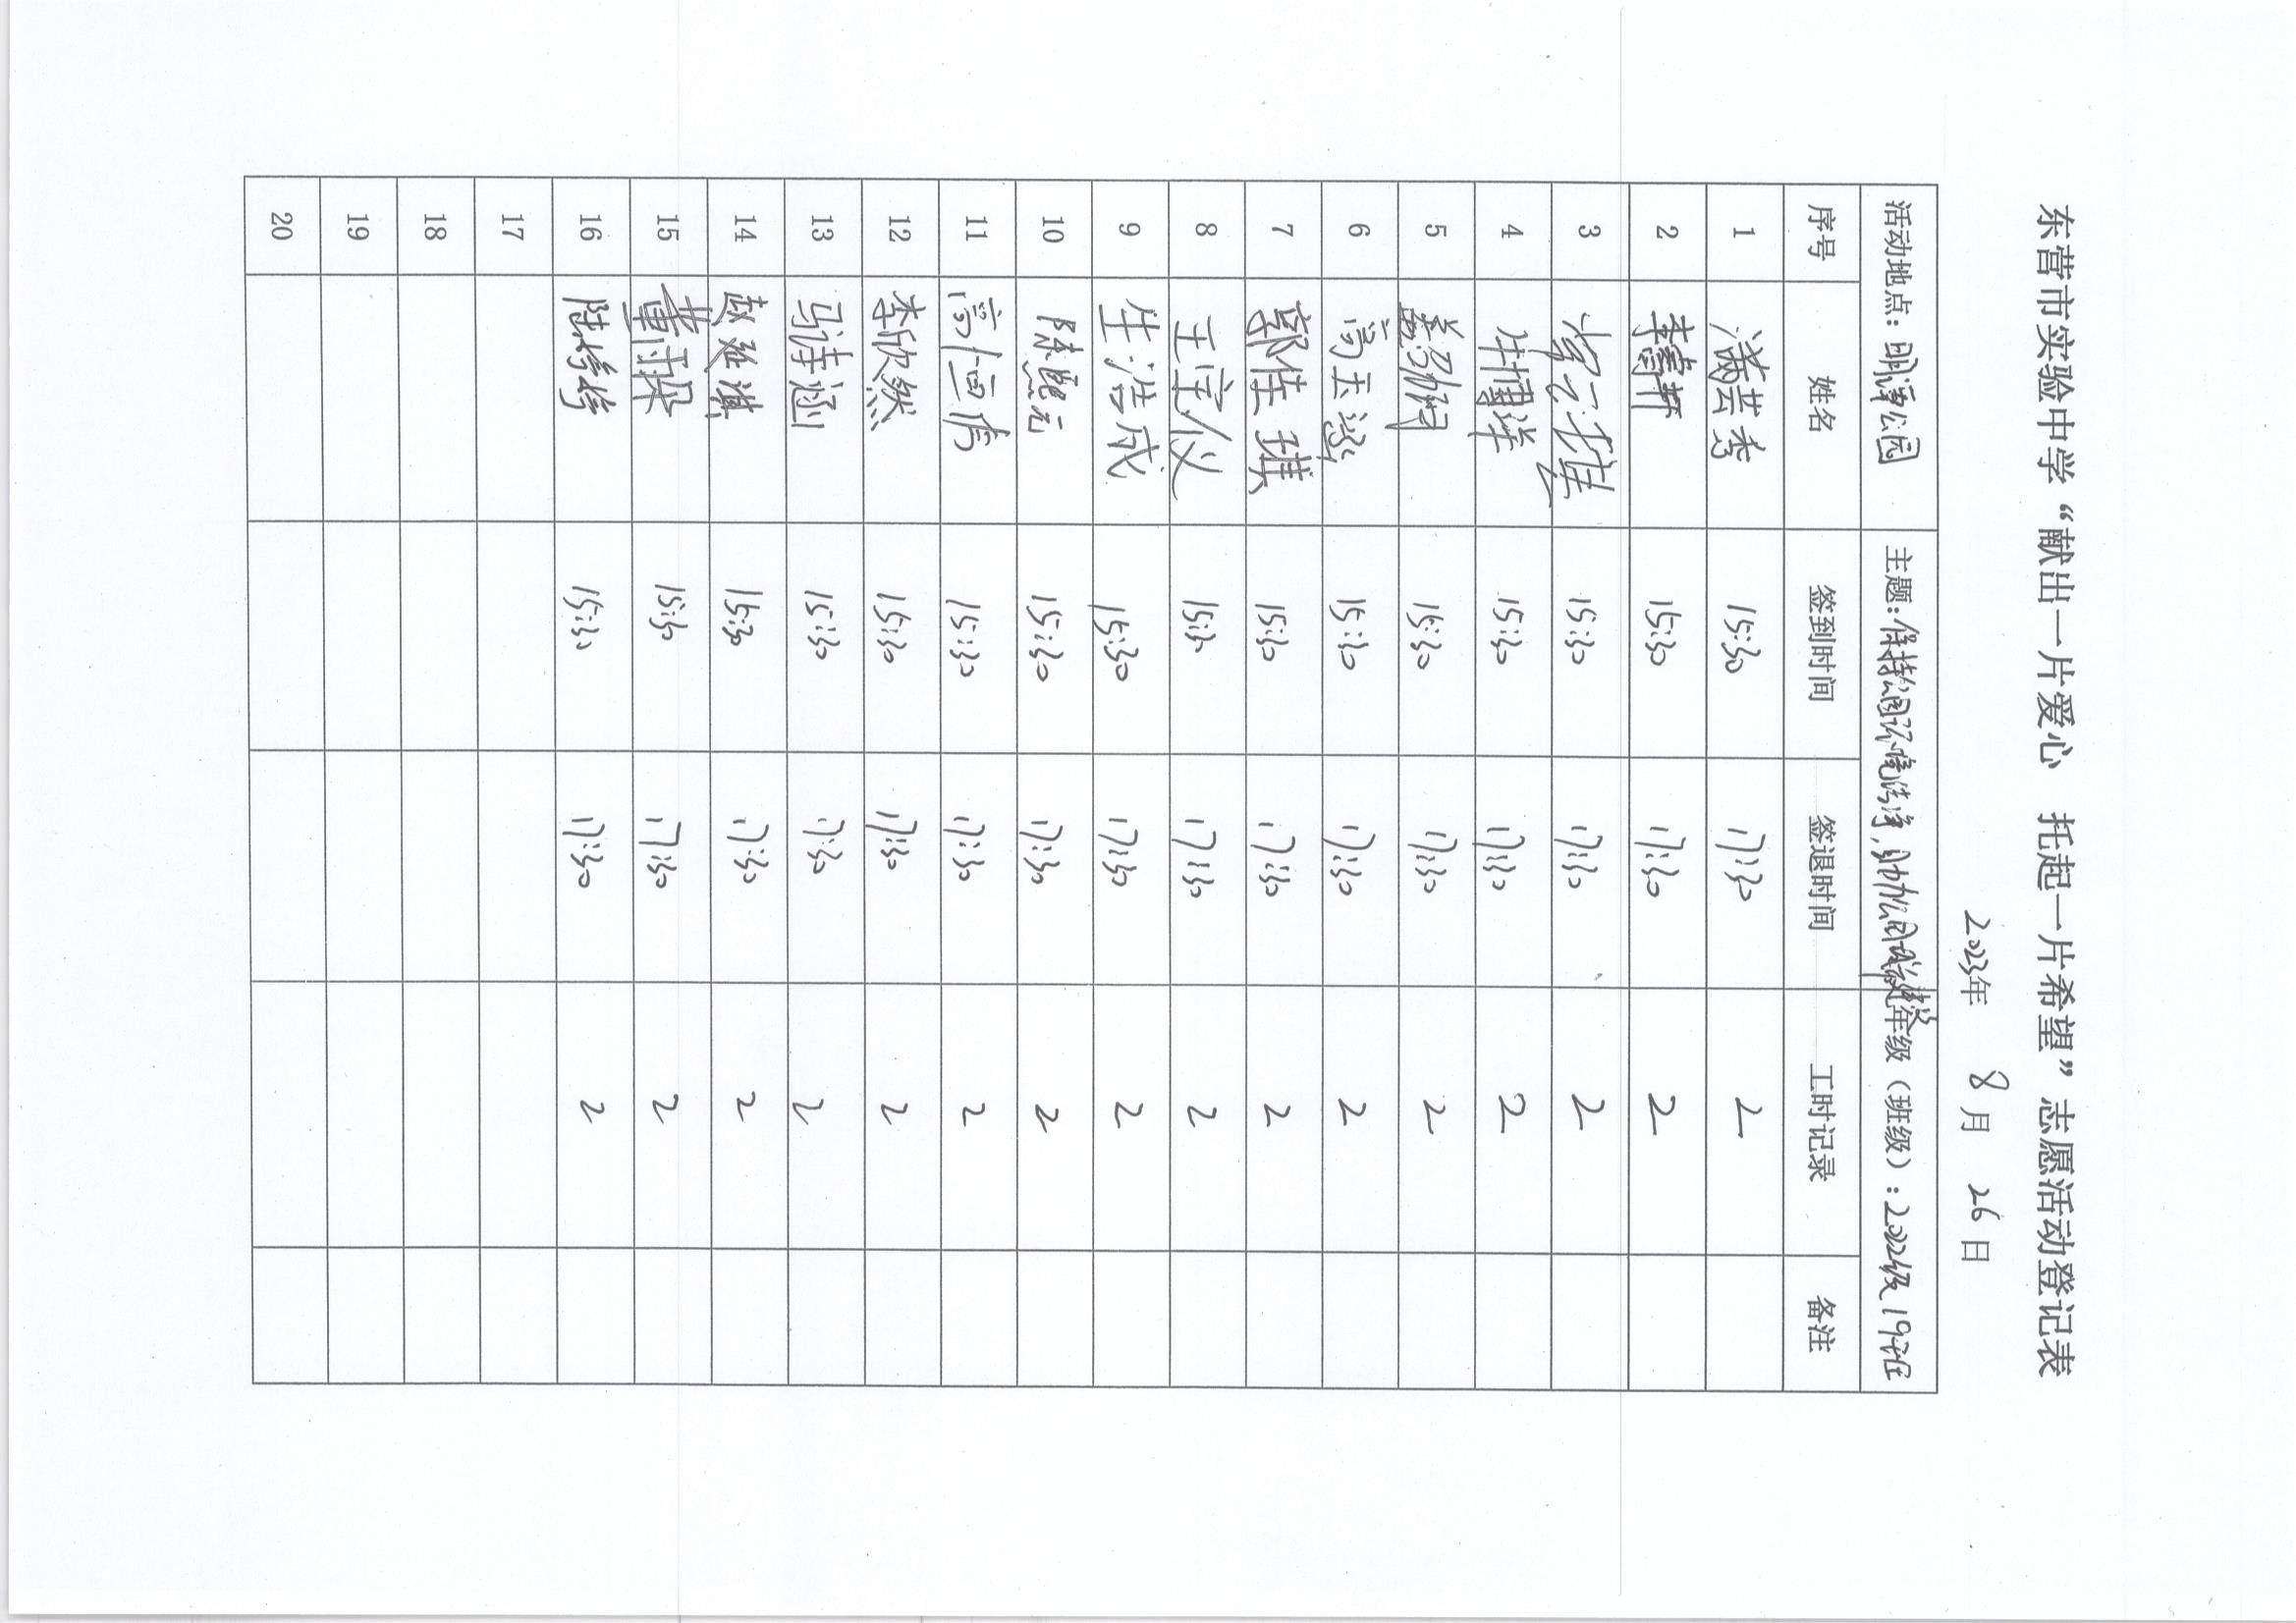 东营市实验中学“献出一片爱心 托起一片希望”志愿活动登记表
2023年 8月 26日
活动地点：明潭公园 主题：保持公园环境洁净，助力公园 年级（班级）：2022级19班
序号 姓名 签到时间 签退时间 工时记录 备注
1 满芸秀 15:30 17:30 2
2 李 轩 15:30 17:30 2
3 15:30 17:30 2
4 15:30 17:30 2
5 15:30 17:30 2
6 高玉 15:30 17:30 2
7 郭佳琪 15:30 17:30 2
8 王宝仪 15:30 17:30 2
9 生浩成 15:30 17:30 2
10 陈琨元 15:30 17:30 2
11 高仁恒 15:30 17:30 2
12 李欣然 15:30 17:30 2
13 马诗涵 15:30 17:30 2
14 赵 淇 15:30 17:30 2
15 黄雨 15:30 17:30 2
16 陆 15:30 17:30 2
17
18
19
20